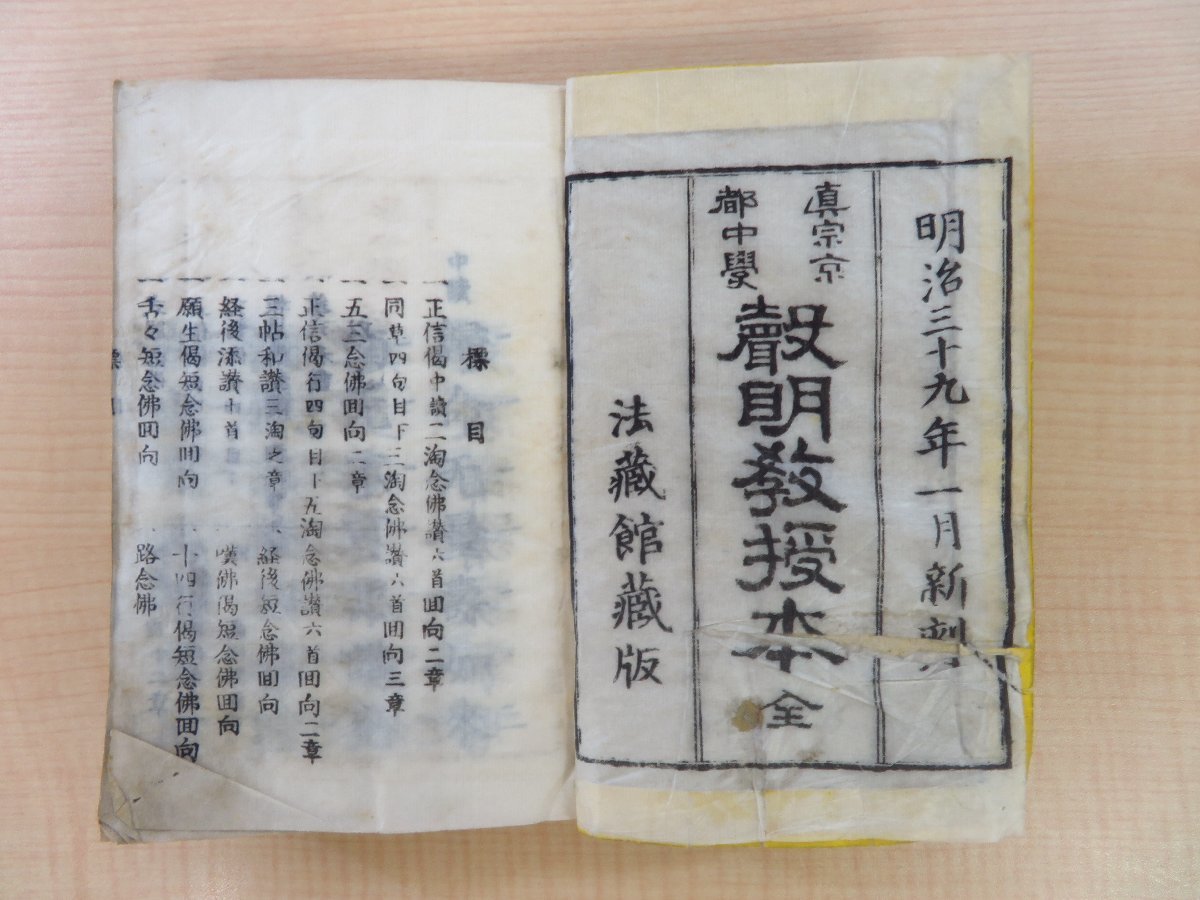 明治三十九年一月新刻
真宗京
都中學
聲明教授本 全
法藏館藏版
標目
一正信偈中讀二淘念佛讃六首回向二章
一同草四句目下三淘念佛讃六首回向三章
一五三念佛回向二章
一正信偈行四句目下五淘念佛讃六首回向二章
一三帖和讃三淘之章 、経後短念佛回向
一経後添讃十首 、嘆佛偈短念佛回向
一願生偈短念佛回向 、十四行偈短念佛回向
一舌々短念佛回向 、路念佛